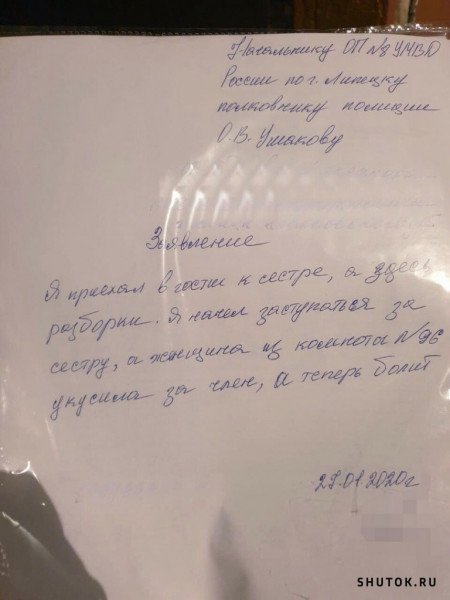 Начальнику ОП №8 УМВД
России по г. Липецку
полковнику полиции
О.В. Ушакову
Заявление
Я приехал в гости к сестре, а здесь
разборки. Я начел заступаться за
сестру, а женщина из комнота №96
укусила за член, а теперь болит
27.01.2020г
SHUTOK.RU